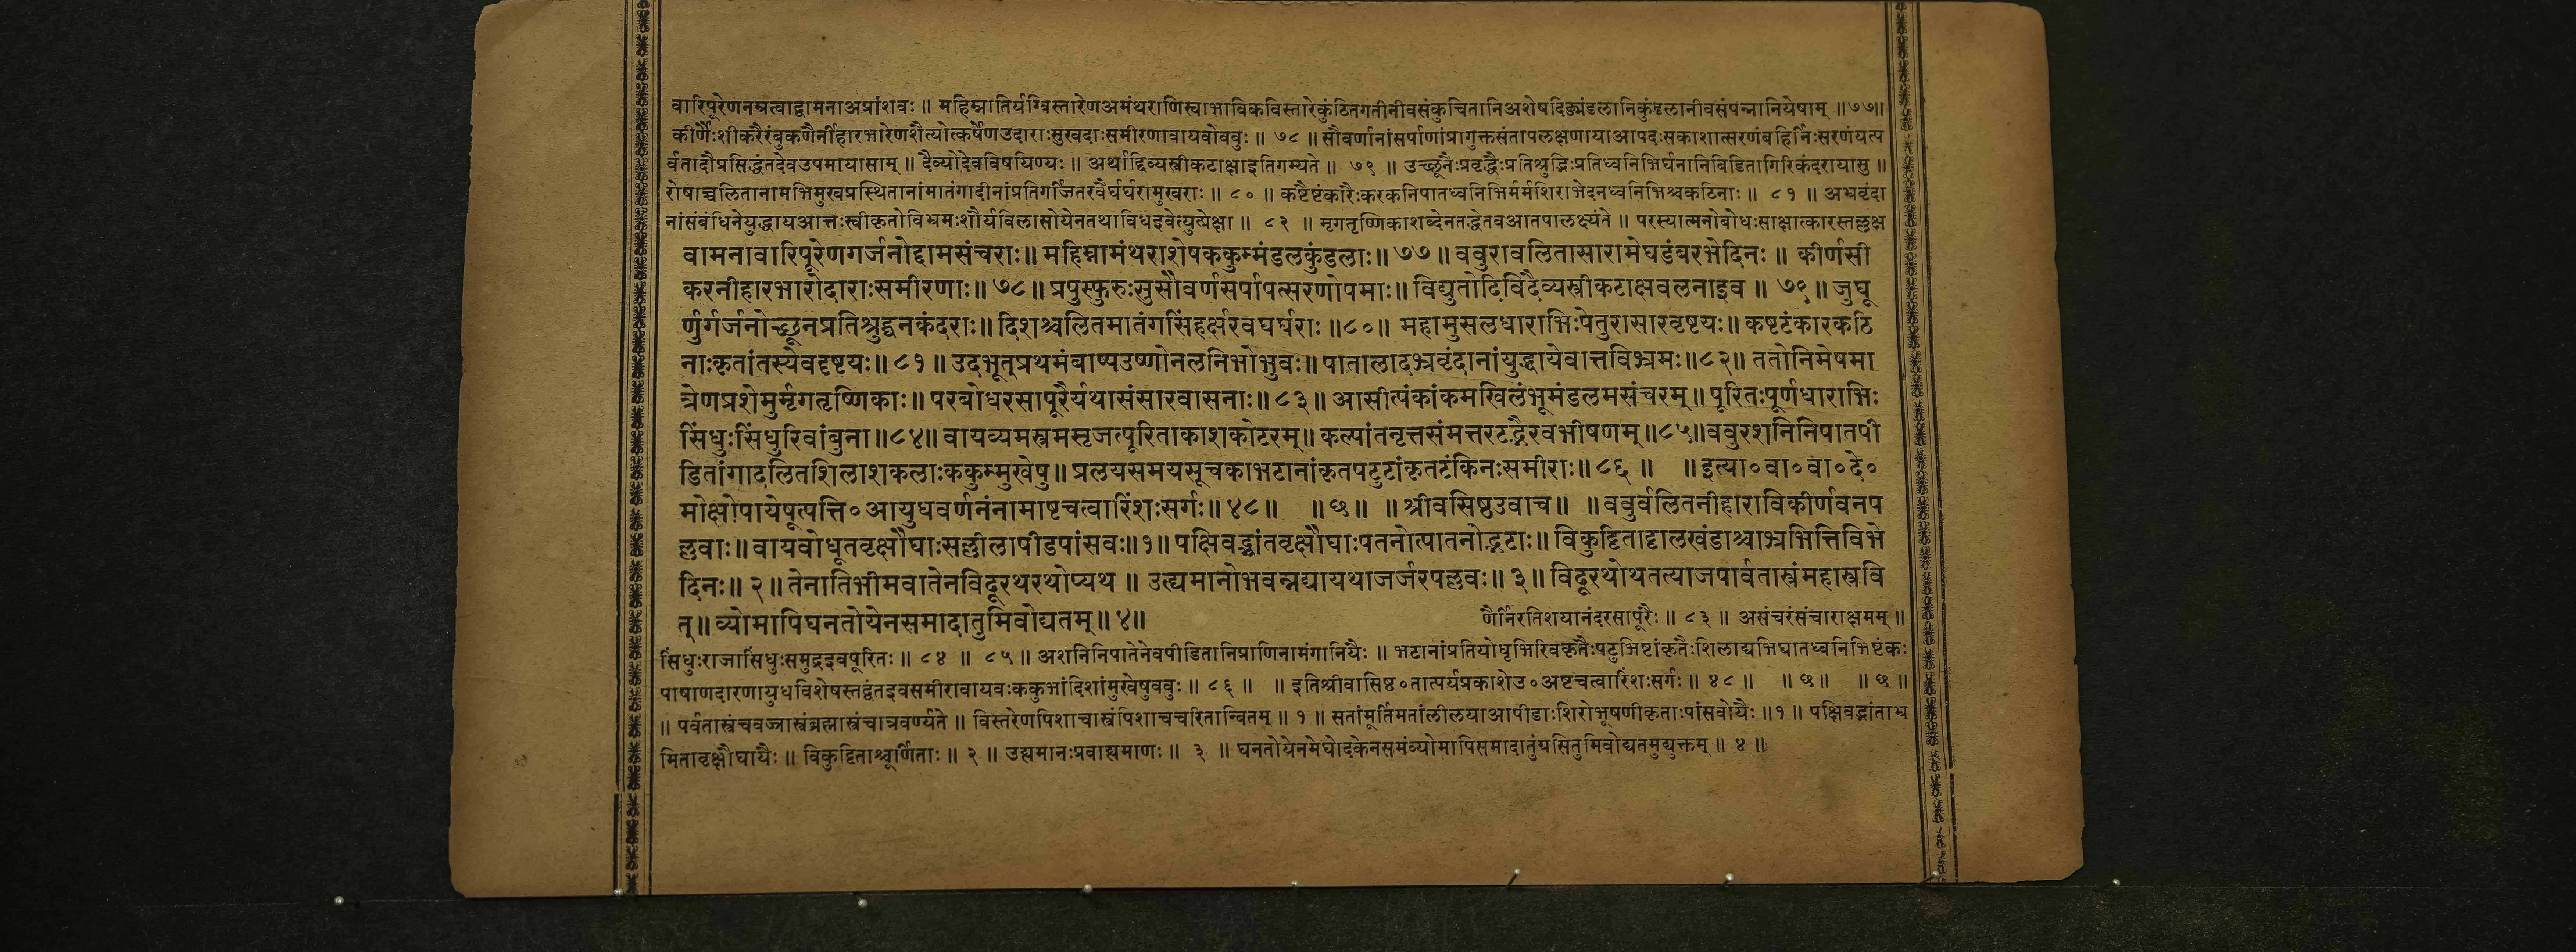 वारिपूरेणनम्रत्वाद्वामनाअप्रांशवः ॥ महिम्नातिर्यग्विस्तारेणअमंथराणिस्वाभाविकविस्तारेकुंठितगतीनीवसंकुचितानिअशेषदिङ्मंडलानिकुंडलानीवसंपन्नानियेषाम् ॥७७॥
कीर्णैःशीकरैरंबुकणैर्नीहारभारेणशैत्योत्कर्षेणउदाराःसुखदाःसमीरणावायवोववुः ॥ ७८ ॥ सौवर्णानांसर्पाणांप्रागुक्तसंतापलक्षणायाआपदःसकाशात्सरणंबहिर्निःसरणंयत्प
र्वतादौप्रसिद्धंतदेवउपमायासाम् ॥ दैव्योदेवविषयिण्यः ॥ अर्थाद्दिव्यस्त्रीकटाक्षाइतिगम्यते ॥ ७९ ॥ उच्छूनैःप्रवृद्धैःप्रतिश्रुद्भिःप्रतिध्वनिभिर्घनानिबिडितागिरिकंदरायासु ॥
रोषाच्चलितानामभिमुखप्रस्थितानांमातंगादीनांप्रतिगर्जितरवैर्घर्घरामुखराः ॥ ८० ॥ कष्टैष्टंकारैःकरकनिपातध्वनिभिर्मर्मशिराभेदनध्वनिभिश्चकठिनाः ॥ ८१ ॥ अभ्रवृंदा
नांसंबंधिनेयुद्धायआत्तःस्वीकृतोविभ्रमःशौर्यविलासोयेनतथाविधइवेत्युत्प्रेक्षा ॥ ८२ ॥ मृगतृष्णिकाशब्देनतद्धेतवआतपालक्ष्यंते ॥ परस्यात्मनोबोधःसाक्षात्कारस्तल्लक्ष
वामनावारिपूरेणगर्जनोद्दामसंचराः॥ महिम्नामंथराशेषककुम्मंडलकुंडलाः॥ ७७ ॥ ववुरावलितासारामेघडंबरभेदिनः ॥ कीर्णसी
करनीहारभारोदाराःसमीरणाः॥ ७८॥ प्रपुस्फुरुःसुसौवर्णसर्पापत्सरणोपमाः॥ विद्युतोदिविदैव्यस्त्रीकटाक्षवलनाइव ॥ ७९॥ जुघू
र्णुर्गर्जनोच्छूनप्रतिश्रुद्घनकंदराः॥ दिशश्चलितमातंगसिंहर्क्षरवघर्घराः ॥८०॥ महामुसलधाराभिःपेतुरासारवृष्टयः॥ कष्टटंकारकठि
नाःकृतांतस्येवदृष्टयः॥ ८१ ॥ उदभूत्प्रथमंबाष्पउष्णोनलनिभोभुवः॥ पातालादभ्रवृंदानांयुद्धायेवात्तविभ्रमः॥८२॥ ततोनिमेषमा
त्रेणप्रशेमुर्मृगतृष्णिकाः॥ परबोधरसापूरैर्यथासंसारवासनाः॥ ८३॥ आसीत्पंकांकमखिलंभूमंडलमसंचरम्॥ पूरितःपूर्णधाराभिः
सिंधुःसिंधुरिवांबुना॥८४॥ वायव्यमस्त्रमसृजत्पूरिताकाशकोटरम्॥ कल्पांतनृत्तसंमत्तरटद्भैरवभीषणम्॥८५॥ववुरशनिनिपातपी
डितांगादलितशिलाशकलाःककुम्मुखेषु॥ प्रलयसमयसूचकाभटानांकृतपटुटांकृतटंकिनःसमीराः॥ ८६ ॥ ॥ इत्या०वा०वा०दे०
मोक्षोपायेषूत्पत्ति०आयुधवर्णनंनामाष्टचत्वारिंशःसर्गः॥ ४८॥ ॥ छ॥ ॥ श्रीवसिष्ठउवाच॥ ॥ ववुर्वलितनीहाराविकीर्णवनप
ल्लवाः॥ वायवोधूतवृक्षौघाःसल्लीलापीडपांसवः॥१॥ पक्षिवद्भ्रांतवृक्षौघाःपतनोत्पातनोद्भटाः॥ विकुट्टिताट्टालखंडाश्चाभ्रभित्तिविभे
दिनः॥ २॥ तेनातिभीमवातेनविदूरथरथोप्यथ ॥ उत्द्यमानोभवन्नद्यायथाजर्जरपल्लवः॥ ३॥ विदूरथोथतत्याजपार्वतास्त्रंमहास्त्रवि
त्॥ व्योमापिघनतोयेनसमादातुमिवोद्यतम्॥ ४॥
णैर्निरतिशयानंदरसापूरैः ॥ ८३ ॥ असंचरंसंचाराक्षमम् ॥
सिंधुःराजासिंधुःसमुद्रइवपूरितः ॥ ८४ ॥ ८५ ॥ अशनिनिपातेनेवपीडितानिप्राणिनामंगानियैः ॥ भटानांप्रतियोधृभिरिवकृतैःपटुभिष्टांकृतैःशिलाद्यभिघातध्वनिभिष्टंकः
पाषाणदारणायुधविशेषस्तद्वंतइवसमीरावायवःककुभांदिशांमुखेषुववुः ॥ ८६ ॥ ॥ इतिश्रीवासिष्ठ०तात्पर्यप्रकाशेउ०अष्टचत्वारिंशःसर्गः ॥ ४८ ॥ ॥ छ ॥ ॥ छ ॥
॥ पर्वतास्त्रंचवज्रास्त्रंब्रह्मास्त्रंचात्रवर्ण्यते ॥ विस्तरेणपिशाचास्त्रंपिशाचचरितान्वितम् ॥ १ ॥ सतांमूर्तिमतांलीलयाआपीडाःशिरोभूषणीकृताःपांसवोयैः ॥१॥ पक्षिवद्भ्रांताभ्र
मितावृक्षौघायैः ॥ विकुट्टिताश्चूर्णिताः ॥ २ ॥ उह्यमानःप्रवाह्यमाणः ॥ ३ ॥ घनतोयेनमेघोदकेनसमंव्योमापिसमादातुंग्रसितुमिवोद्यतमुद्युक्तम् ॥ ४ ॥